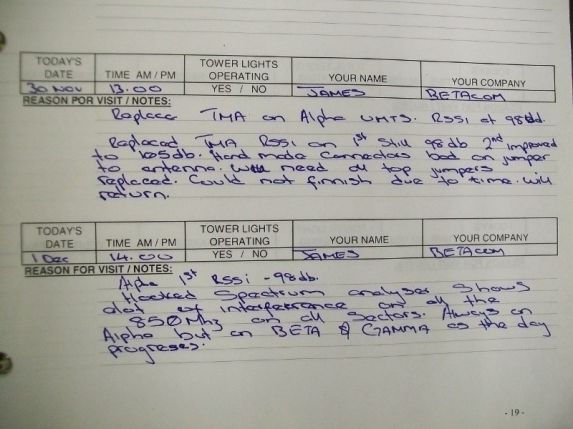 TODAY'S DATE TIME AM / PM TOWER LIGHTS OPERATING YES / NO YOUR NAME YOUR COMPANY
30 NOV 13.00 JAMES BETACOM
REASON FOR VISIT / NOTES:
Replace TMA on Alpha UMTS. RSSI at 98dd.
Replaced TMA RSSI on 1st Still 98db 2nd Improved
to 105db. Hand made connectors bad on jumper
to antenna. Will need all top jumpers
replaced. Could not finnish due to time. Will
return.
TODAY'S DATE TIME AM / PM TOWER LIGHTS OPERATING YES / NO YOUR NAME YOUR COMPANY
1 Dec 14.00 JAMES BETACOM
REASON FOR VISIT / NOTES:
Alpha 1st RSSi -98db.
Hooked Spectrum analyser Shows
alot of interferrence on all the
850Mhz on all Sectors. Always on
Alpha but on BETA & GAMMA as the day
progreses.
- 19 -